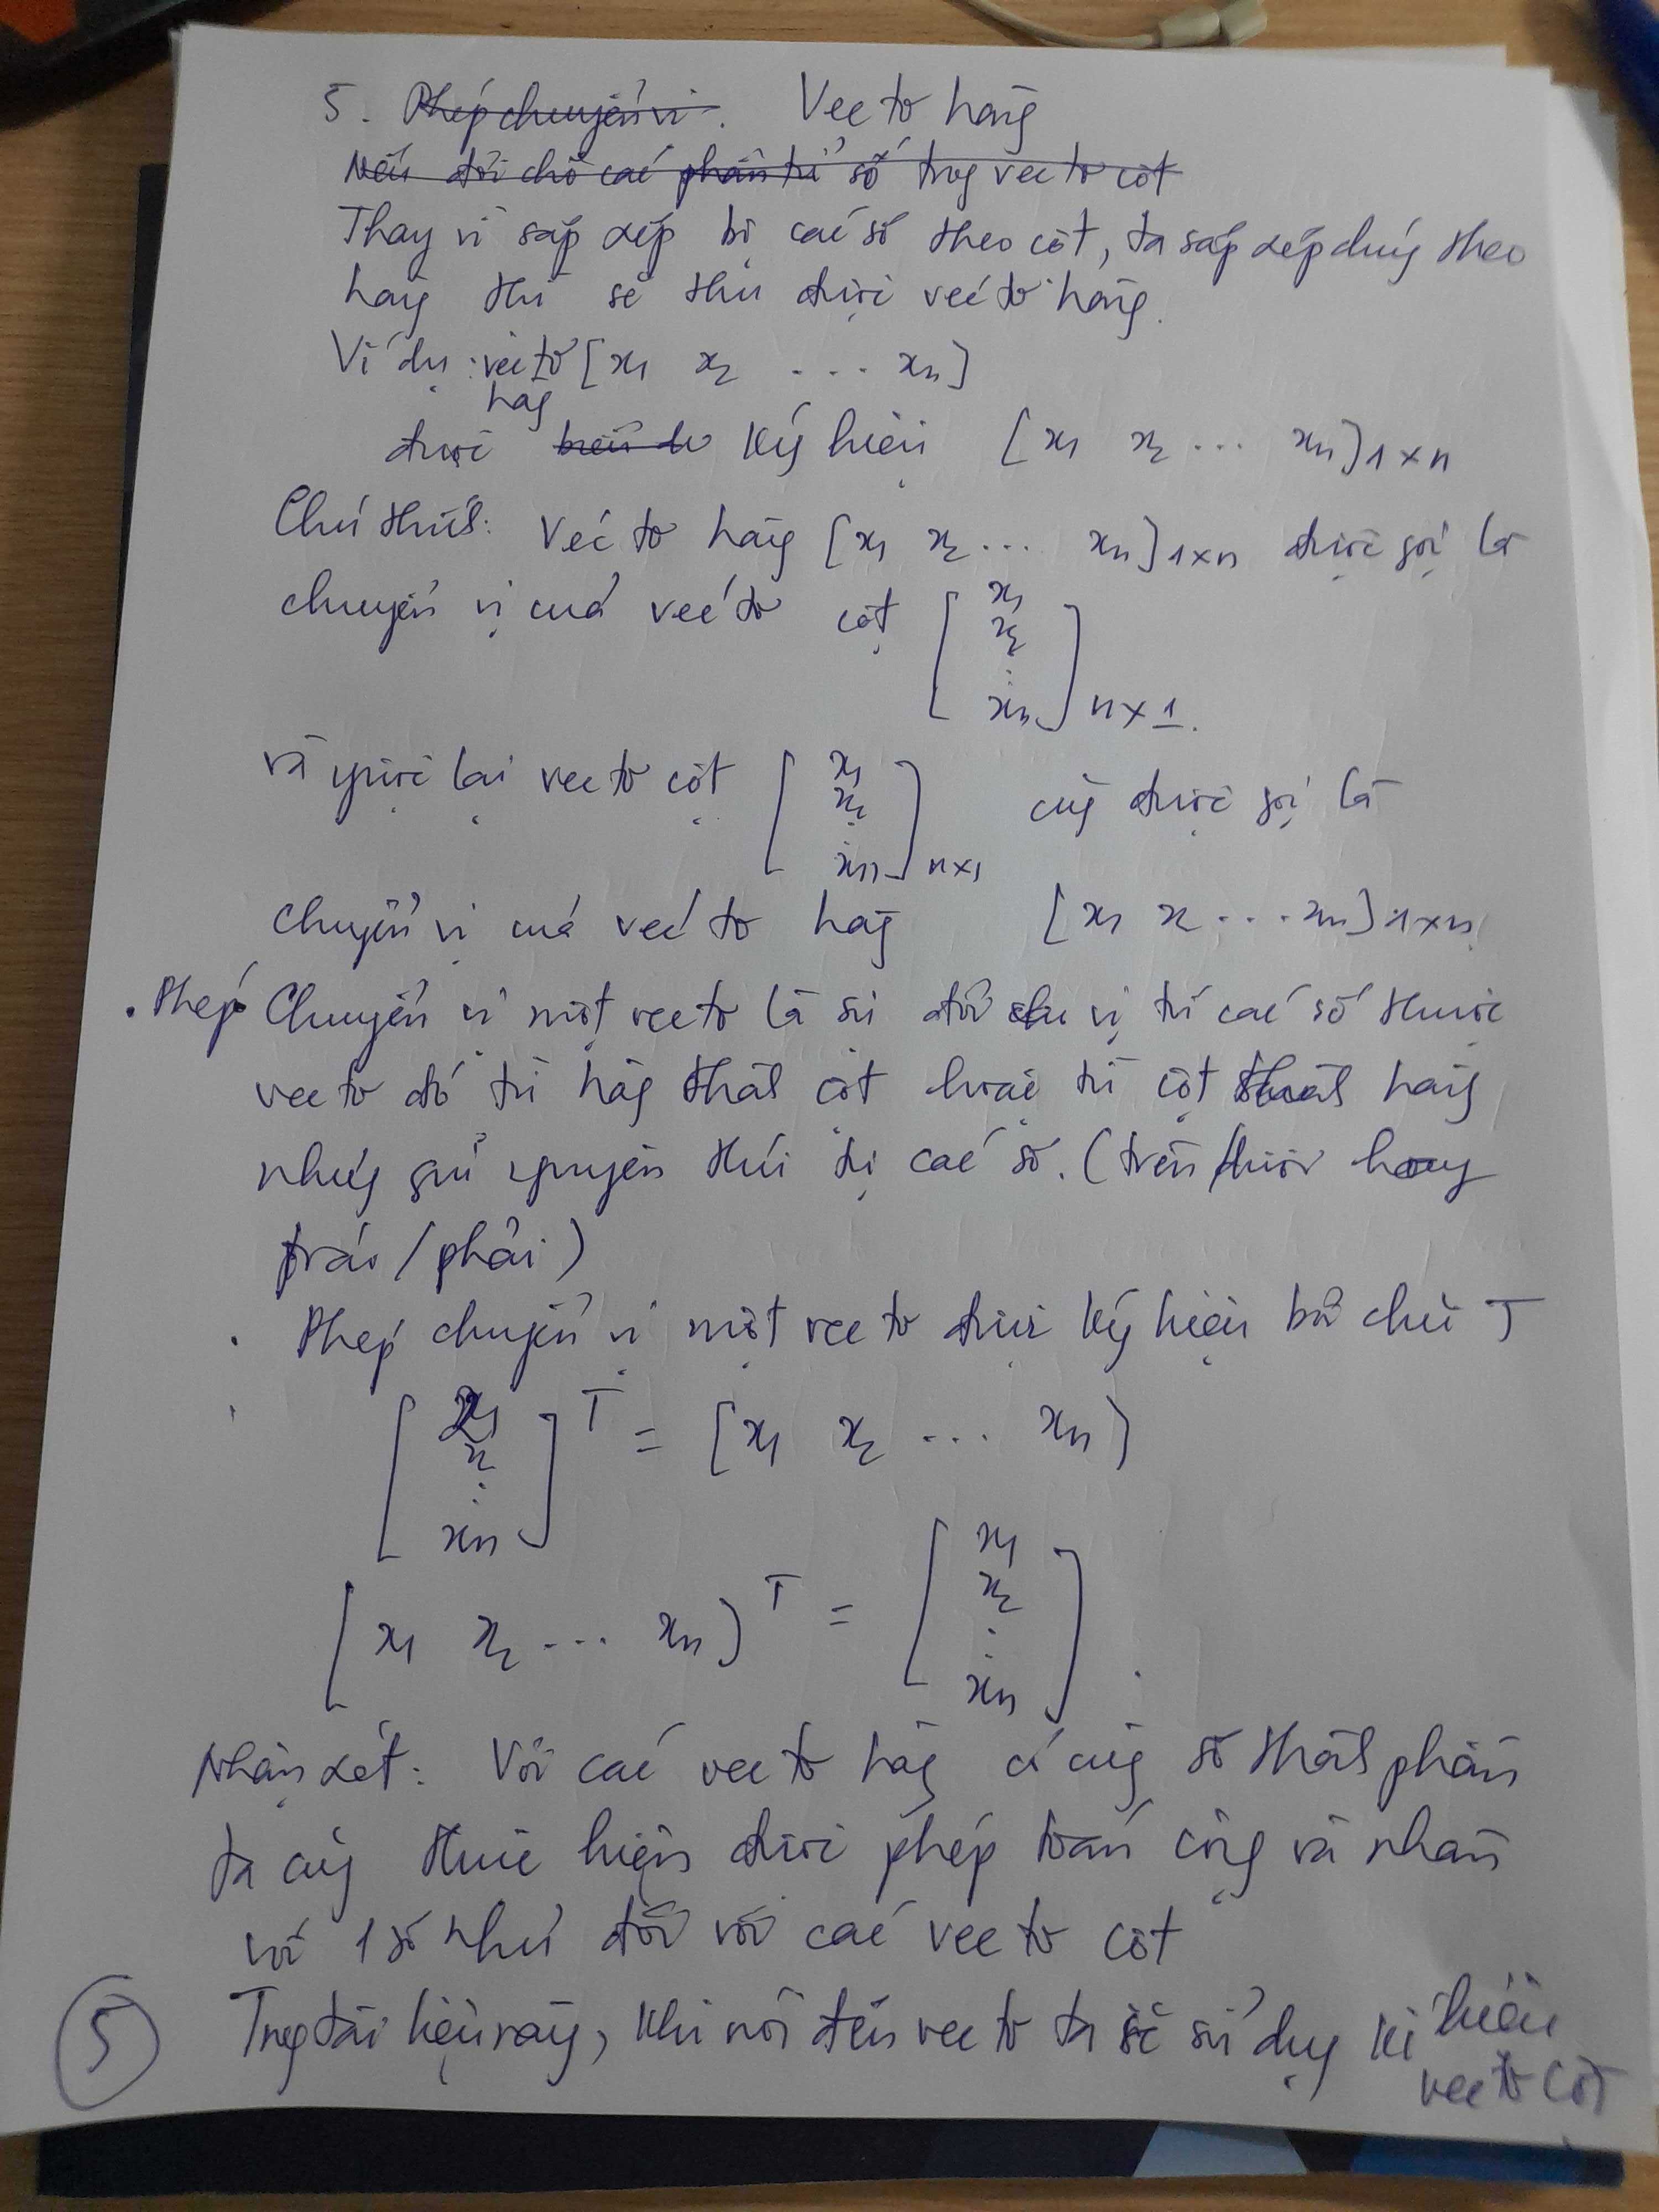 5. Phép chuyển vị. Vectơ hàng
Nếu đổi chỗ các phần tử số trong vectơ cột
Thay vì sắp xếp bộ các số theo cột, ta sắp xếp chúng theo
hàng thì sẽ thu được véctơ hàng.
Ví dụ: vectơ [x1 x2 ... xn]
hàng
được ký hiệu [x1 x2 ... xn]1×n
Chú thích: Véctơ hàng [x1 x2 ... xn]1×n được gọi là
chuyển vị của véctơ cột [x1 x2 . xn]n×1.
và ngược lại vectơ cột [x1 x2 : xn]n×1 cũng được gọi là
chuyển vị của véctơ hàng [x1 x2 ... xn]1×n
. Phép Chuyển vị một vectơ là sự đổi vị trí các số thuộc
vectơ đó từ hàng thành cột hoặc từ cột thành hàng
nhưng giữ nguyên thứ tự các số. (trên/dưới hay
trái/phải)
. Phép chuyển vị một vectơ được ký hiệu bởi chữ T
[x1 x2 : xn]T = [x1 x2 ... xn]
[x1 x2 ... xn]T = [x1 x2 : xn].
Nhận xét: Với các vectơ hàng có cùng số thành phần
ta cũng thực hiện được phép toán cộng và nhân
với 1 số như đối với các vectơ cột
Trong tài liệu này, khi nói đến vectơ ta sẽ sử dụng kí hiệu
vectơ cột
5